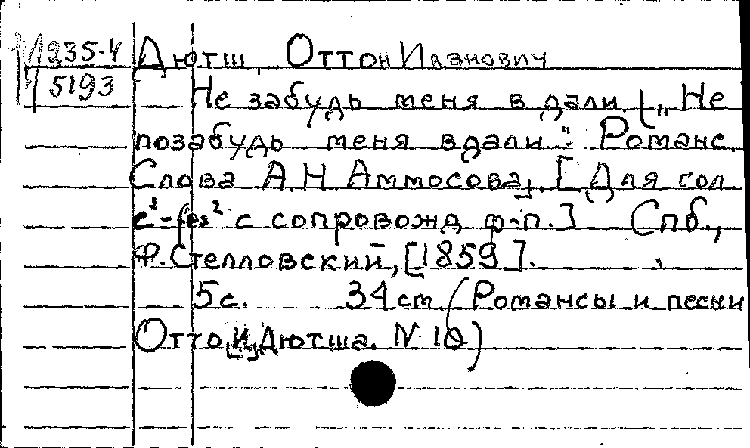 235-4 Дютш, Оттон Иванович
5193 Не забудь меня в дали. („Не
позабудь меня вдали": Романс.
Слова А Н Аммосова, [Для гол.
с¹-fes² с сопровожд ф-п.] Спб.,
Ф. Стелловский, [1859].
5с. 34 см (Романсы и песни
Отто [И] Дютша. N 10)